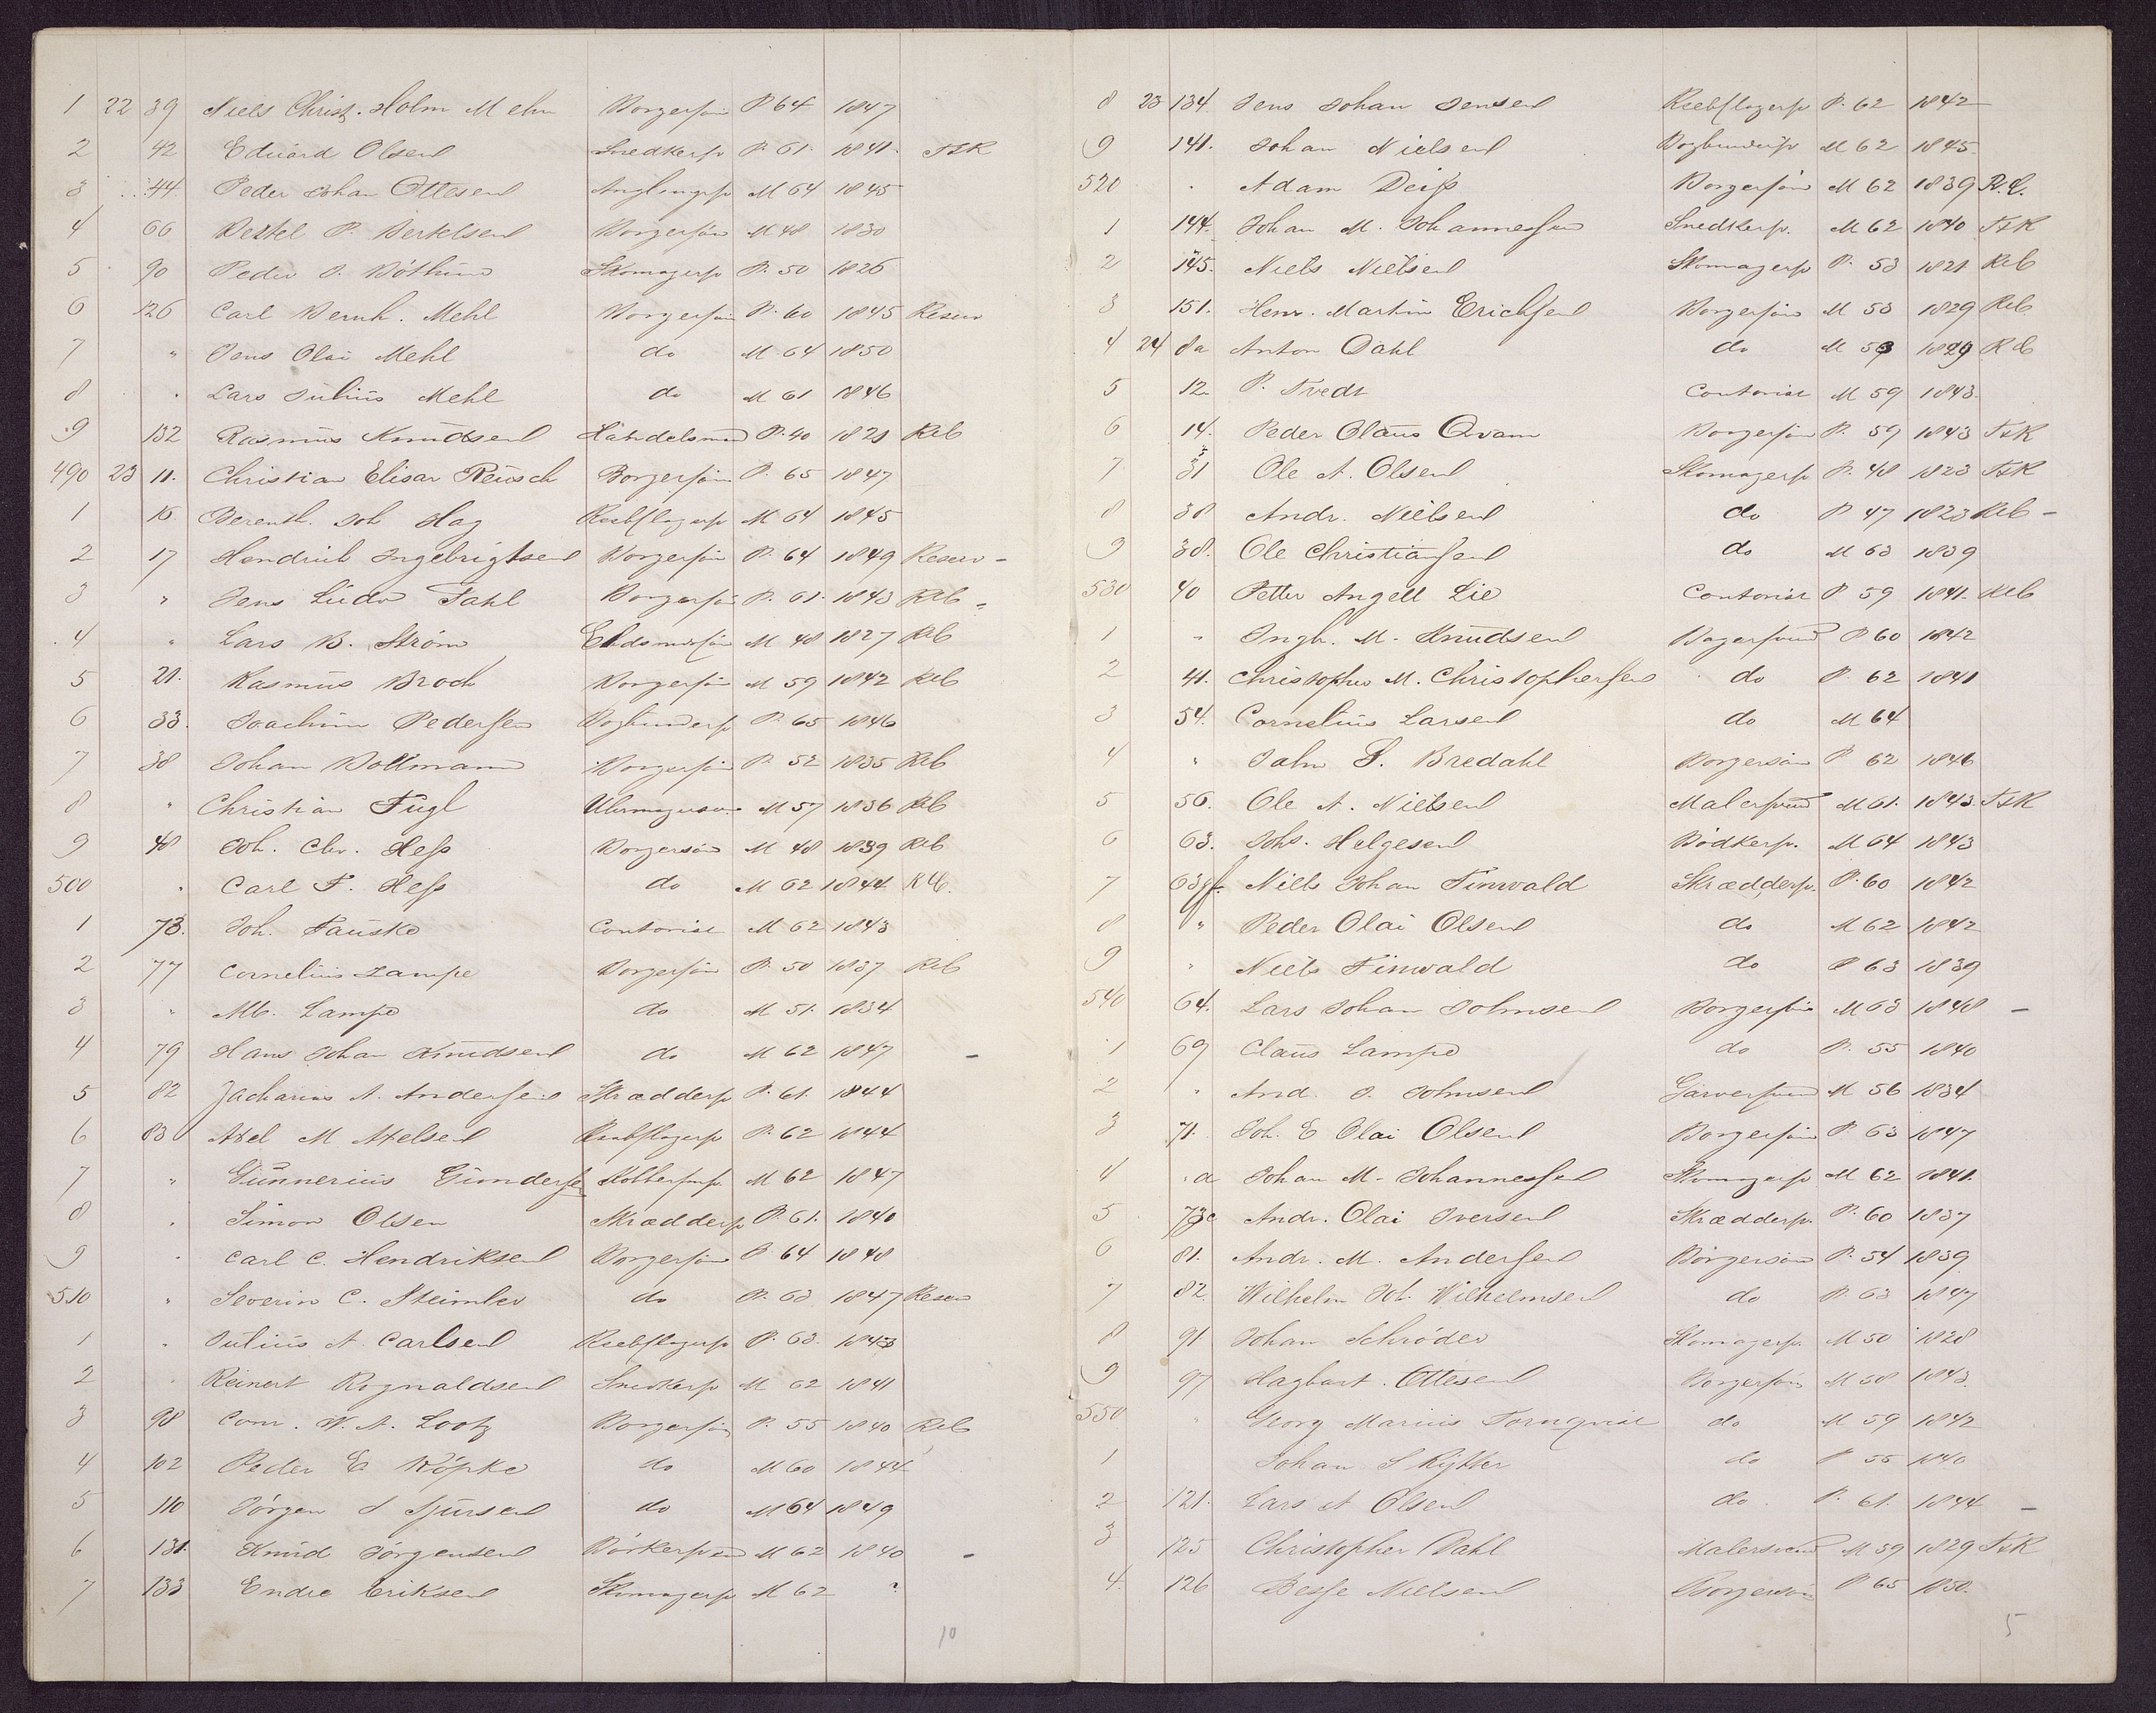 1 22 39 Niels Christ. Holm Mehn Borgersön P. 64 1847
2 42 Eduard Olsen Snedkersv P. 61. 1841. FSK
3 44 Peder Johan Ottesen M 64 1845
4 66 Bertel P. Bertelsen Borgersön M 48 1830
5 90 Peder J. Böthun Skomagersv P. 50 1826
6 126 Carl Bernh. Mehl Borgersön P. 60 1845 Reserv
7 " Jens Olai Mehl do M 64 1850
8 " Lars Julius Mehl do M 61 1846
9 132 Rasmus Knudsen Handelsmd P. 40 1821 Reb
490 23 11. Christian Elisar Reusch Borgersön P. 65 1847
1 15 Berenth. Joh Hag Reebslagersv M 64 1845
2 17 Hendrick Ingebrigtsen Borgersön P. 64 1849 Reserv -
3 " Jens Ludv Fahl Borgersön P. 61. 1843 Reb -
4 " Lars B. Ström M 48 1827 Reb
5 21. Rasmus Broch Borgersön M 59 1842 Reb
6 33. Joachim Pedersen Bogbindersv P. 65 1846
7 38 Johan Boltmann Borgersön P. 52 1835 Reb
8 " Christian Fugl Uhrmagersv M 57 1836 Reb
9 48 Joh. Chr. Hess Borgersön M 48 1839 Reb
500 " Carl F. Hess do M 62 1844 Reb.
1 73. Joh. Fauske Contorist M 62 1843
2 77 Cornelius Lampe Borgersön P. 50 1837 Reb
3 " Alb. Lampe do M 51. 1834
4 79 Hans Johan Knudsen do M 62 1847 -
5 82 Zacharias A. Andersen Skræddersv P. 61. 1844
6 83 Axel M Axelsen Reebslagersv P. 62 1844
7 " Gunnerius Gundersen Kobbersmsv M 62 1847
8 " Simon Olsen Skræddersv P. 61. 1840
9 " Carl C. Hendriksen Borgersön P. 64 1848
510 " Severin C. Steimler do P. 63 1847 Reserv
1 " Julius A. Carlsen Reebslagersv P. 63. 1843
2 " Reinert Rognaldsen Snedkersv M 62 1841
3 98 Conr. W. A. Lootz Borgersön P. 55 1840 Reb
4 102 Peder E Köpke do M 60 1844
5 110 Jörgen S Sjursen do M 64 1849
6 131. Knud Jörgensen Bödkersvend M 62 1840 -
7 133 Endre Eriksen Skomagersv M 62 ?
10
8 23 134 Jens Johan Jensen Reebslagersv P. 62 1842
9 141. Johan Nielsen Bogbindersv M 62 1845
520 " Adam Deiss Borgersön M 62 1839 R.C.
1 144. Johan M. Johannessen Snedkersv. M 62 1840 FSK
2 145. Niels Nielsen Skomagersv P. 53 1821 Reb
3 151. Henr. Martin Erichsen Borgersön M 53 1829 Reb
4 24 8a Anton Dahl do M 53 1829 Reb
5 12 P. Tvedt Contorist M 59 1843.
6 14. Peder Olaus Qvam Borgersön P. 59 1843 FSK
7 31 Ole A. Olsen Skomagersv P. 48 1823 FSK
8 38 Andr. Nielsen do P 47 1823 Reb -
9 38. Ole Christiansen do M 63 1839
530 40 Petter Angell Lie Contorist P 59 1841. Reb
1 " Ingbr. M. Knudsen Bagersvend P 60 1842
2 41. Christopher M. Christophersen do P. 62 1841
3 54. Cornelius Larsen do M 64
4 " Jahn L. Bredahl Borgersön P 62 1846
5 56. Ole A. Nielsen Malersvend M 61. 1843. FSK
6 63. Johs. Helgesen Bödkersv. M 64 1843
7 63 Niels Johan Finwald Skræddersv. P. 60 1842
8 " Peder Olai Olsen do M 62 1842
9 " Niels Finwald do P 63 1839
540 64. Lars Johan Johnsen Borgersön M 63 1848 -
1 69 Claus Lampe do P. 55 1840
2 " And. J. Johnsen Garversvend M 56 1834
3 71. Joh. E Olai Olsen Borgersön P. 63 1847
4 " a Johan M. Johannessen Skomagersv M 62 1841.
5 73c Andr. Olai Iversen Skræddersv. P. 60 1837
6 81. Andr. M. Andersen Borgersön P. 54 1839
7 82 Wilhelm Joh. Wilhelmsen do P. 63 1847
8 91 Johan Schröder Skomagersv. M 50 1828
9 97 Hagbart. Ottesen Borgersön M 58 1843.
550 " Georg Marius Tornqvist do M 59 1842
1 Johan S Rytter do P 55 1840
2 121. Lars A Olsen do P. 61. 1844 -
3 125 Christopher Dahl Malersvend M 59 1829 FSK
4. 126 Besse Nielsen Borgersön P 65 1850.
5